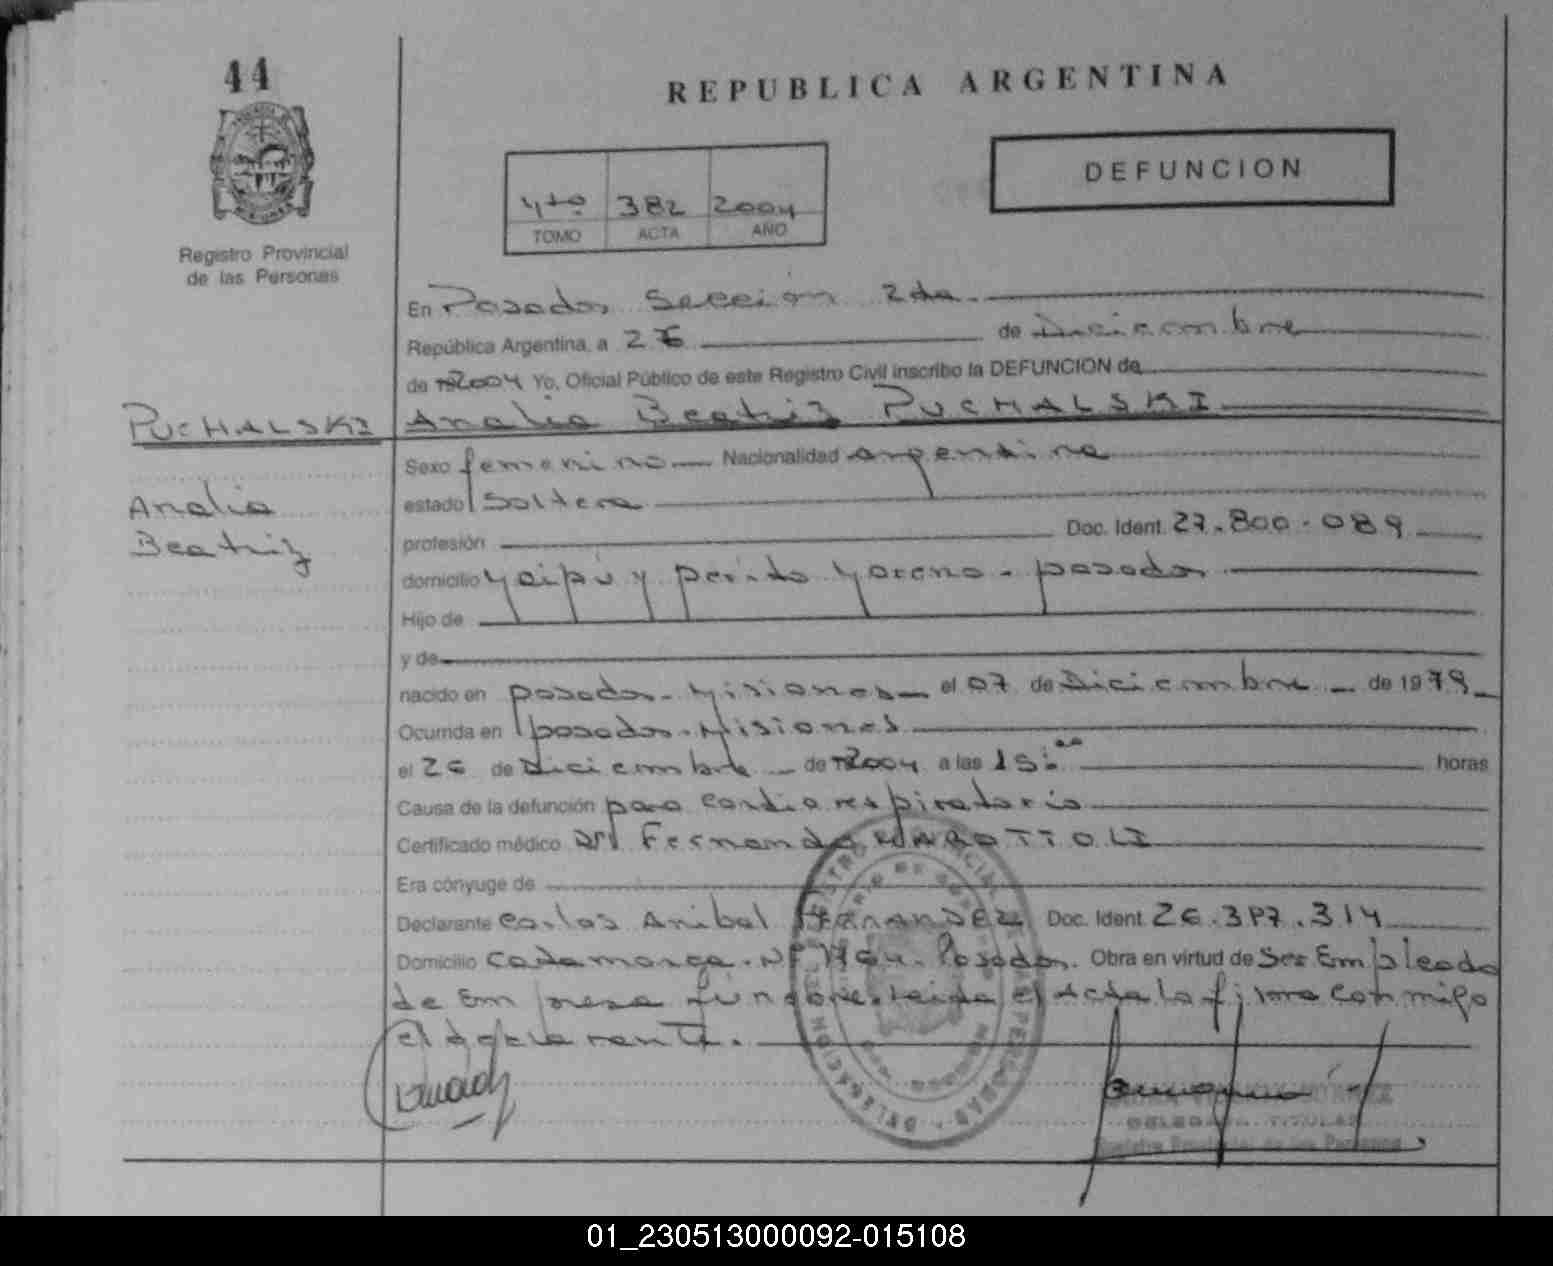 44
REPUBLICA ARGENTINA
DEFUNCION
4to 382 2004
TOMO ACTA AÑO
Registro Provincial
de las Personas
En Posadas Sección 2da.
República Argentina, a 26 de Diciembre
de 2004 Yo, Oficial Público de este Registro Civil inscribo la DEFUNCION de
PUCHALSKI Analia Beatriz PUCHALSKI
Analia
Beatriz
Sexo femenino Nacionalidad argentina
estado Soltera
profesión Doc. Ident. 27.800.089
domicilio Maipú y perito Moreno - posadas
Hijo de
y de
nacido en posadas - Misiones el 07 de Diciembre de 1979
Ocurrida en posadas - Misiones
el 26 de Diciembre de 2004 a las 15:00 horas
Causa de la defunción paro cardio respiratorio
Certificado médico Dr Fernando
Era cónyuge de
Declarante Carlos Anibal HERNANDEZ Doc. Ident. 26.387.314
Domicilio Catamarca Nº 1764. Posadas. Obra en virtud de Ser Empleado
de Empresa fúnebre. Leida el Acta la firma conmigo
el declarante.
DELEGADA TITULAR
Registro Provincial de las Personas
01_230513000092-015108